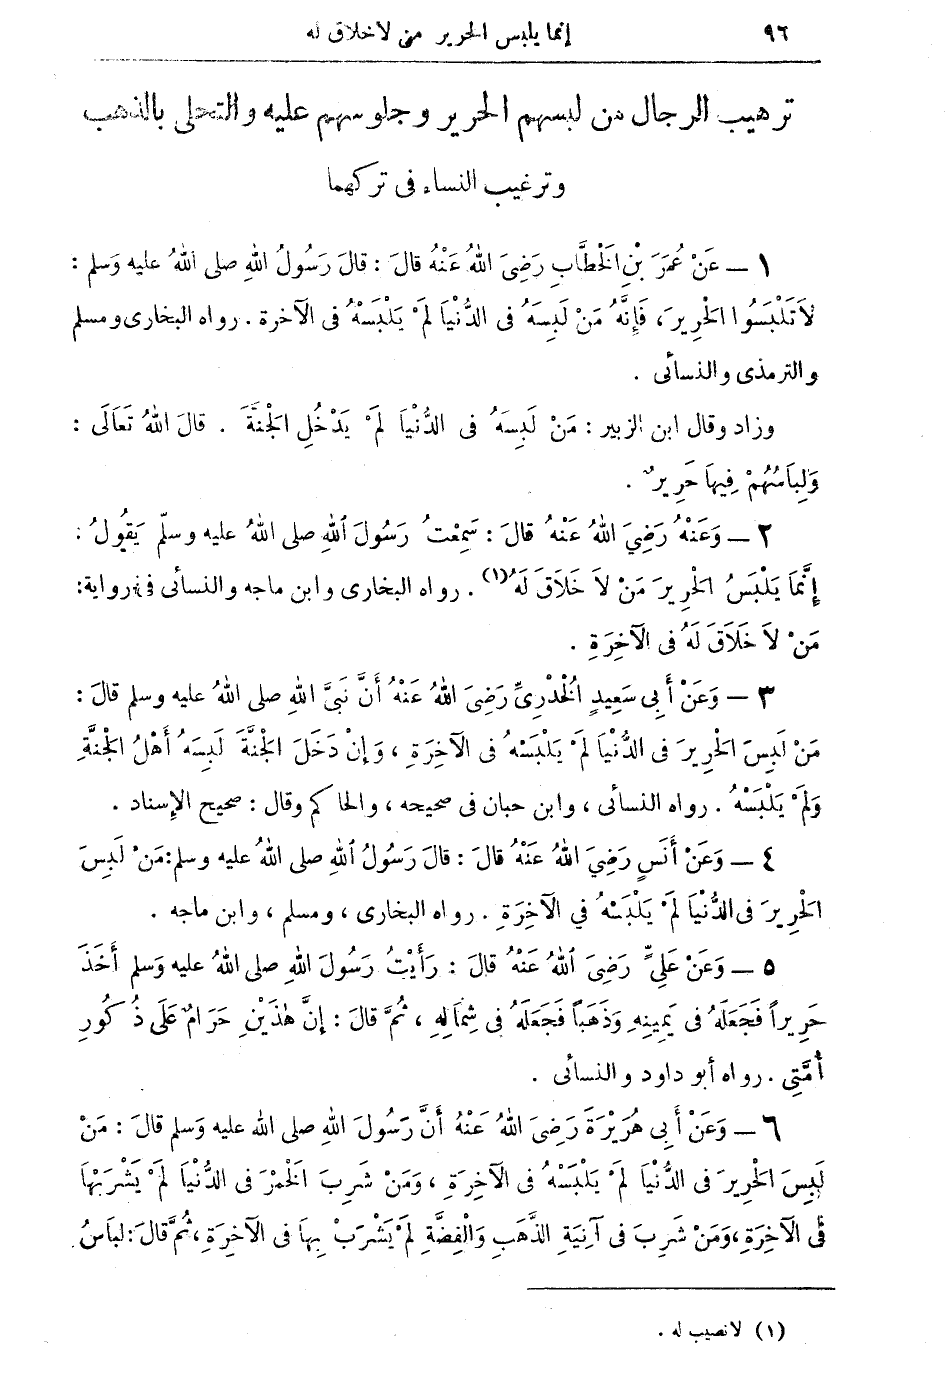 ٩٦ إنما يلبس الحرير من لا خلاق له
ترهيب الرجال من لبسهم الحرير وجلوسهم عليه والتحلى بالذهب
وترغيب النساء فى تركهما
١ — عَنْ عُمَرَ بْنِ الْخَطَّابِ رَضِىَ اللهُ عَنْهُ قالَ : قالَ رَسُولُ اللهِ صلى اللهُ عليه وَسلم :
لاَ تَلْبَسُوا الْحَرِيرَ ، فَإِنَّهُ مَنْ لَبِسَهُ فى الدُّنْيَا لَمْ يَلْبَسْهُ فى الآخرة . رواه البخارى ومسلم
والترمذى والنسائى .
وزاد وقال ابن الزبير : مَنْ لَبِسَهُ فى الدُّنْيَا لَمْ يَدْخُلِ الْجَنَّةَ . قالَ اللهُ تَعَالَى :
وَلِبَاسُهُمْ فِيهَا حَرِيرٌ .
٢ — وَعَنْهُ رَضِىَ اللهُ عَنْهُ قالَ : سَمِعْتُ رَسُولَ اللهِ صلى اللهُ عليه وسلّم يَقُولُ :
إِنَّمَا يَلْبَسُ الْحَرِيرَ مَنْ لاَ خَلاَقَ لَهُ (١) . رواه البخارى وابن ماجه والنسائى فى رواية :
مَنْ لاَ خَلاَقَ لَهُ فى الآخِرَةِ .
٣ — وَعَنْ أَبى سَعِيدٍ الْخُدْرِىِّ رَضِىَ اللهُ عَنْهُ أَنَّ نَبِىَّ اللهِ صلى اللهُ عليه وسلم قالَ :
مَنْ لَبِسَ الْحَرِيرَ فى الدُّنْيَا لَمْ يَلْبَسْهُ فى الآخِرَةِ ، وَإِنْ دَخَلَ الْجَنَّةَ لَبِسَهُ أَهْلُ الْجَنَّةِ
وَلَمْ يَلْبَسْهُ . رواه النسائى ، وابن حبان فى صحيحه ، والحاكم وقال : صحيح الإسناد .
٤ — وَعَنْ أَنَسٍ رَضِىَ اللهُ عَنْهُ قالَ : قالَ رَسُولُ اللهِ صلى اللهُ عليه وسلم : مَنْ لَبِسَ
الْحَرِيرَ فى الدُّنْيَا لَمْ يَلْبَسْهُ فِي الآخِرَةِ . رواه البخارى ، ومسلم ، وابن ماجه .
٥ — وَعَنْ عَلِىٍّ رَضِىَ اللهُ عَنْهُ قالَ : رَأَيْتُ رَسُولَ اللهِ صلى اللهُ عليه وَسلم أَخَذَ
حَرِيراً فَجَعَلَهُ فى يَمِينِهِ وَذَهَباً فَجَعَلَهُ فى شِمَالِهِ ، ثُمَّ قالَ : إِنَّ هٰذَيْنِ حَرَامٌ عَلَى ذُكُورِ
أُمَّتِى . رواه أبو داود والنسائى .
٦ — وَعَنْ أَبى هُرَيْرَةَ رَضِىَ اللهُ عَنْهُ أَنَّ رَسُولَ اللهِ صلى الله عليه وَسلم قالَ : مَنْ
لَبِسَ الْحَرِيرَ فى الدُّنْيَا لَمْ يَلْبَسْهُ فى الآخِرَةِ ، وَمَنْ شَرِبَ الْخَمْرَ فى الدُّنْيَا لَمْ يَشْرَبْهَا
فى الآخِرَةِ ، وَمَنْ شَرِبَ فى آنِيَةِ الذَّهَبِ وَالْفِضَّةِ لَمْ يَشْرَبْ بِهَا فى الآخِرَةِ ، ثُمَّ قالَ : لِبَاسُ
(١) لا نصيب له .